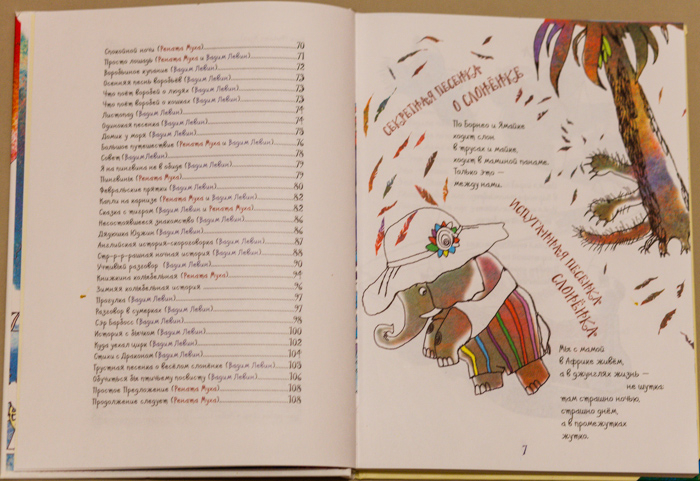 Спокойной ночи (Рената Муха) 70
Просто лошадь (Рената Муха и Вадим Левин) 71
Воробьиное купание (Вадим Левин) 72
Осенняя песнь воробьёв (Вадим Левин) 73
Что поёт воробей о людях (Вадим Левин) 73
Что поёт воробей о кошках (Вадим Левин) 73
Листопад (Вадим Левин) 74
Одинокая песенка (Вадим Левин) 74
Домик у моря (Вадим Левин) 75
Большое путешествие (Рената Муха и Вадим Левин) 76
Совет (Вадим Левин) 78
Я на пингвина не в обиде (Вадим Левин) 79
Пингвинёк (Рената Муха) 79
Февральские прятки (Вадим Левин) 80
Капли на карнизе (Рената Муха и Вадим Левин) 82
Сказка с тиграм (Вадим Левин и Рената Муха) 82
Несостоявшееся знакомство (Вадим Левин) 86
Дядюшка Юджин (Вадим Левин) 86
Английская история-скороговорка (Вадим Левин) 87
Стр-р-р-рашная ночная история (Вадим Левин) 88
Учтивый разговор (Вадим Левин) 90
Книжкина колыбельная (Рената Муха) 94
Зимняя колыбельная история 96
Прогулка (Вадим Левин) 97
Разговор в сумерках (Вадим Левин) 97
Сэр Барбосс (Вадим Левин) 98
История с бычком (Вадим Левин) 100
Куда уехал цирк (Вадим Левин) 102
Стихи с Драконом (Вадим Левин) 104
Грустная песенка о весёлом слонёнке (Вадим Левин) 105
Обучиться бы птичьему посвисту (Вадим Левин) 106
Простое Предложение (Рената Муха) 108
Продолжение следует (Рената Муха) 108
СЕКРЕТНАЯ ПЕСЕНКА
О СЛОНЁНКЕ
По Борнео и Ямайке
ходит слон
в трусах и майке,
ходит в маминой панаме.
Только это —
между нами.
ИСПУГАННАЯ ПЕСЕНКА
СЛОНЁНКА
Мы с мамой
в Африке живём,
а в джунглях жизнь —
не шутка:
там страшно ночью,
страшно днём,
а в промежутках
жутко.
7